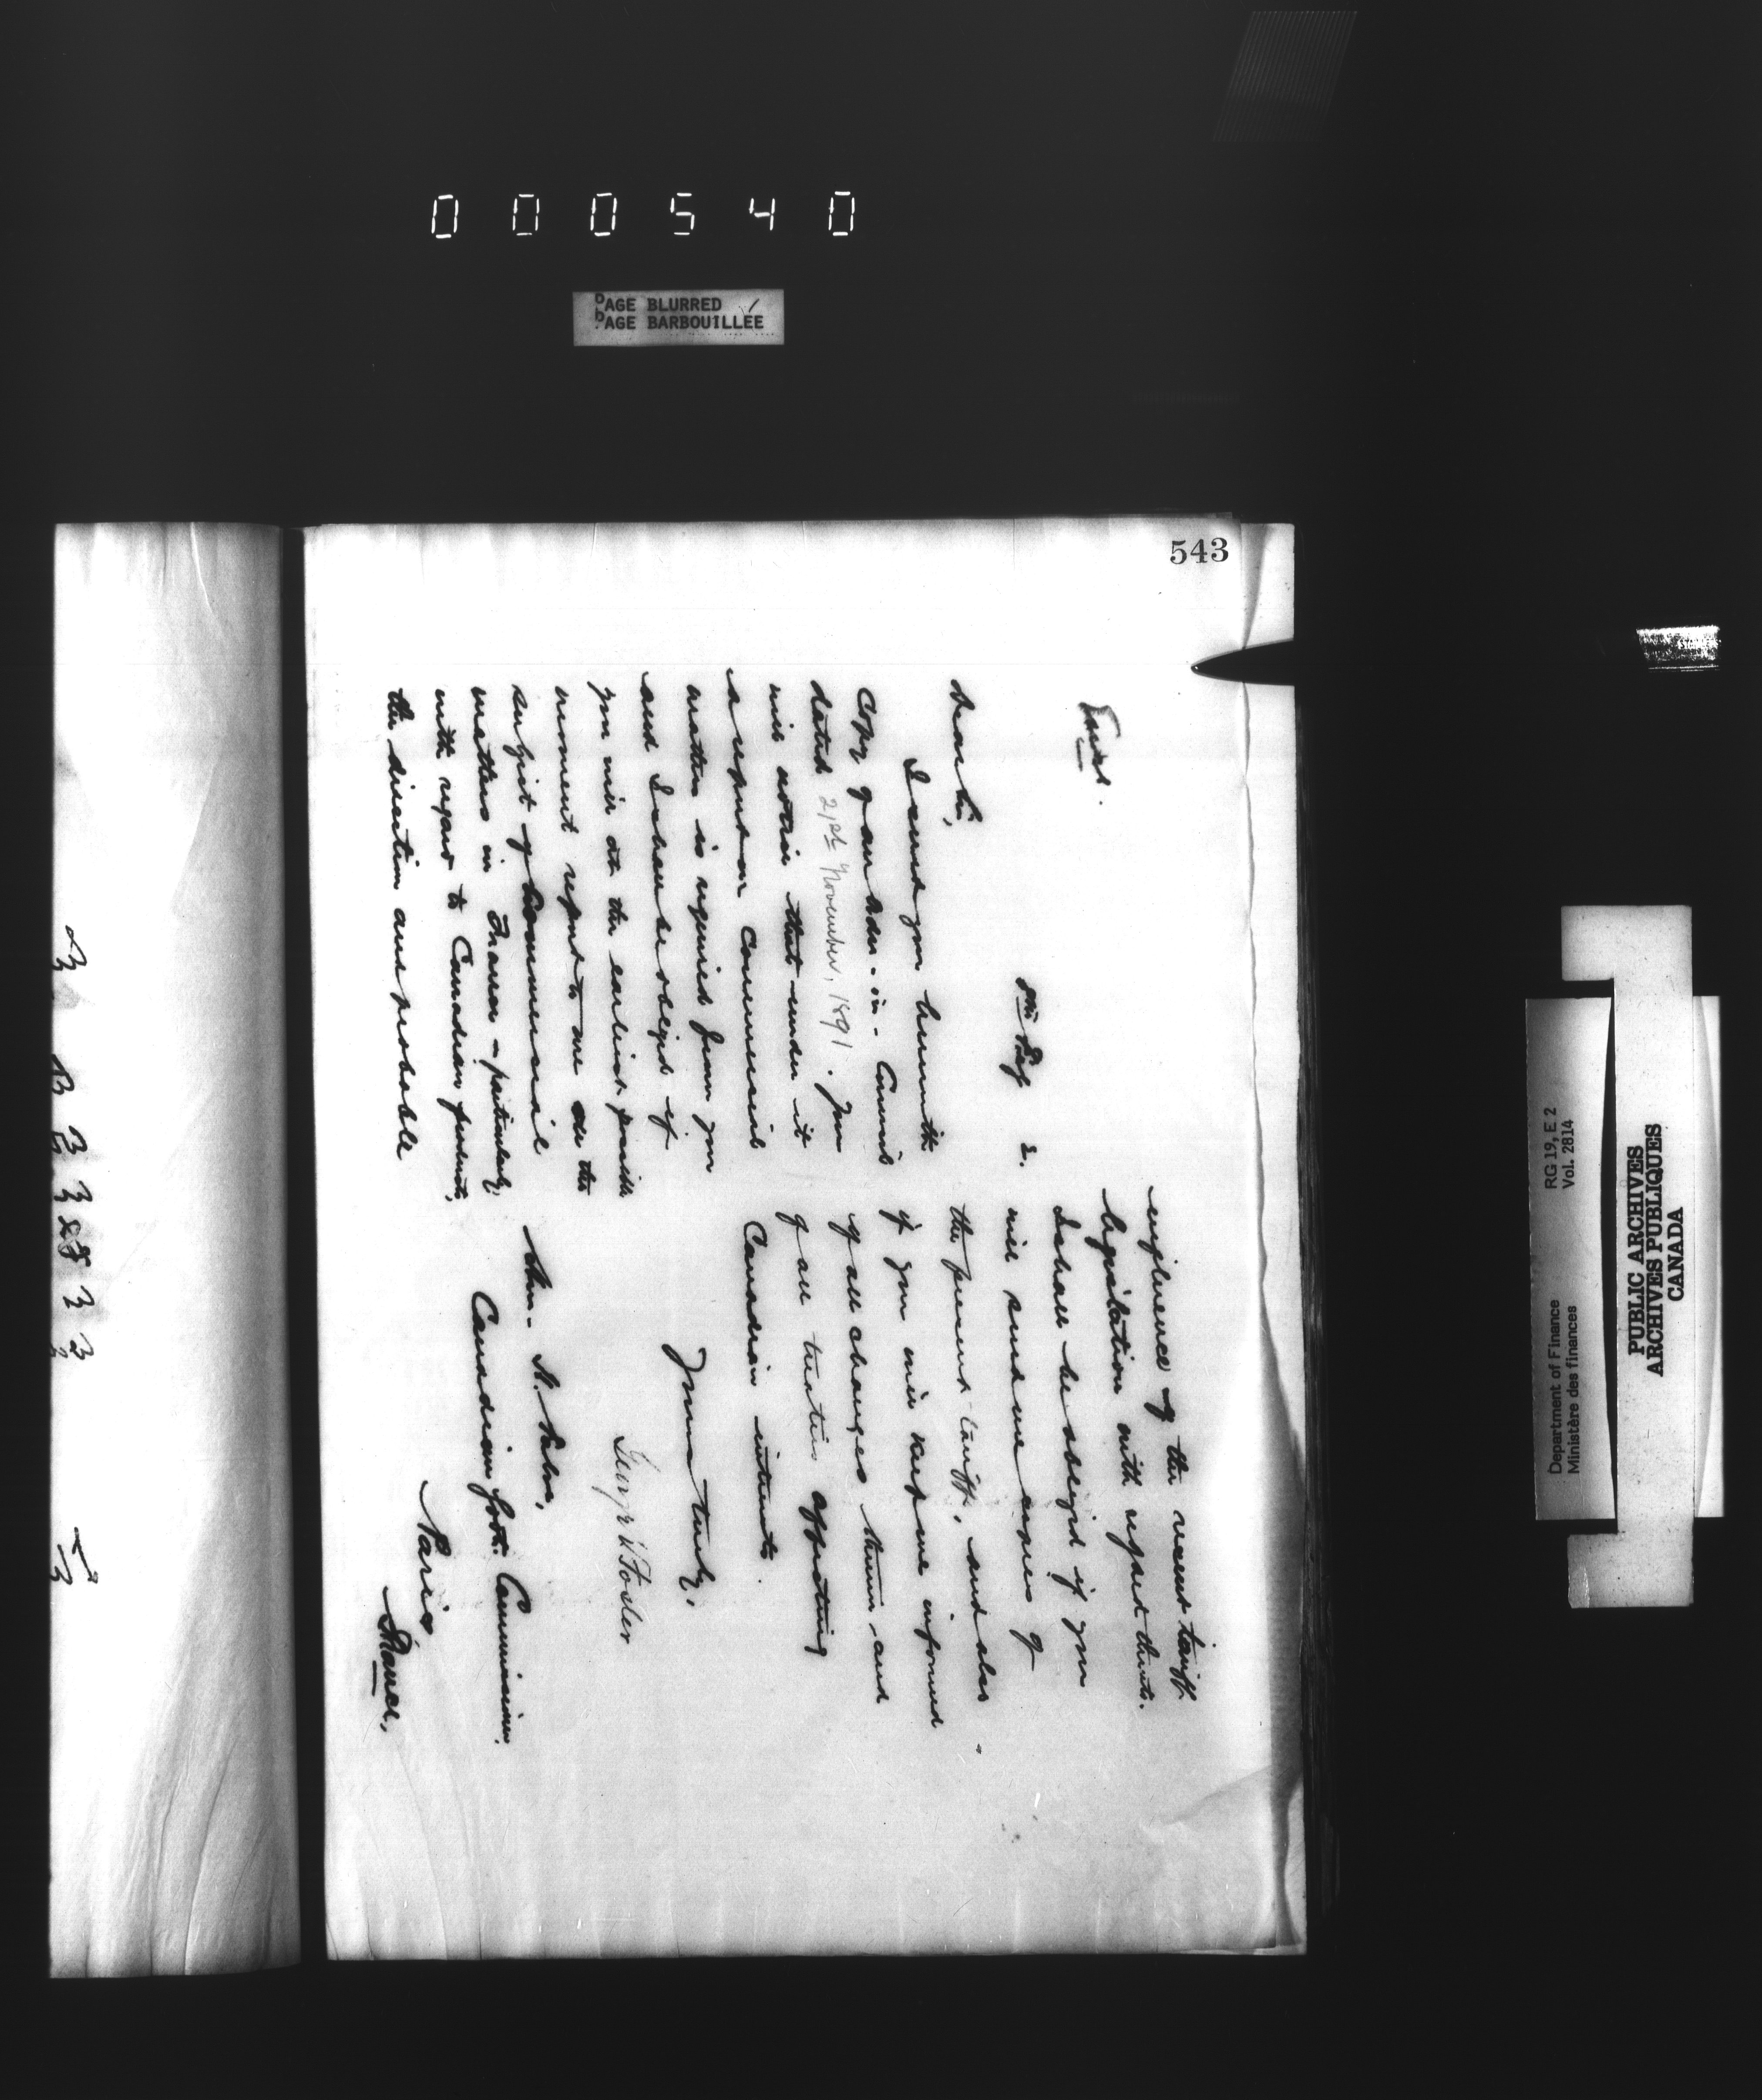 000540
PAGE BLURRED
PAGE BARBOUILLÉE
543
Encs.
2.
Dear Sir,
I send you herewith
copy of an Order-in-Council
dated 21st November, 1891. You
will notice that under it
a report on Commercial
matters is required from you
and I shall be obliged if
you will at the earliest possible
moment report to me on the
subject of Commercial
matters in France - particularly
with regard to Canadian products,
the direction and probable
influence of the recent tariff
legislation with regard thereto.
I shall be obliged if you
will send me copies of
the present tariff, and also
if you will keep me informed
of all changes therein, and
of all treaties affecting
Canadian interests.
Yours truly,
George E Foster
Hon. H. Fabre,
Canadian Govt. Commissioner,
Paris,
France.
Department of Finance
Ministère des finances
RG 19, E 2
Vol. 2814
PUBLIC ARCHIVES
ARCHIVES PUBLIQUES
CANADA